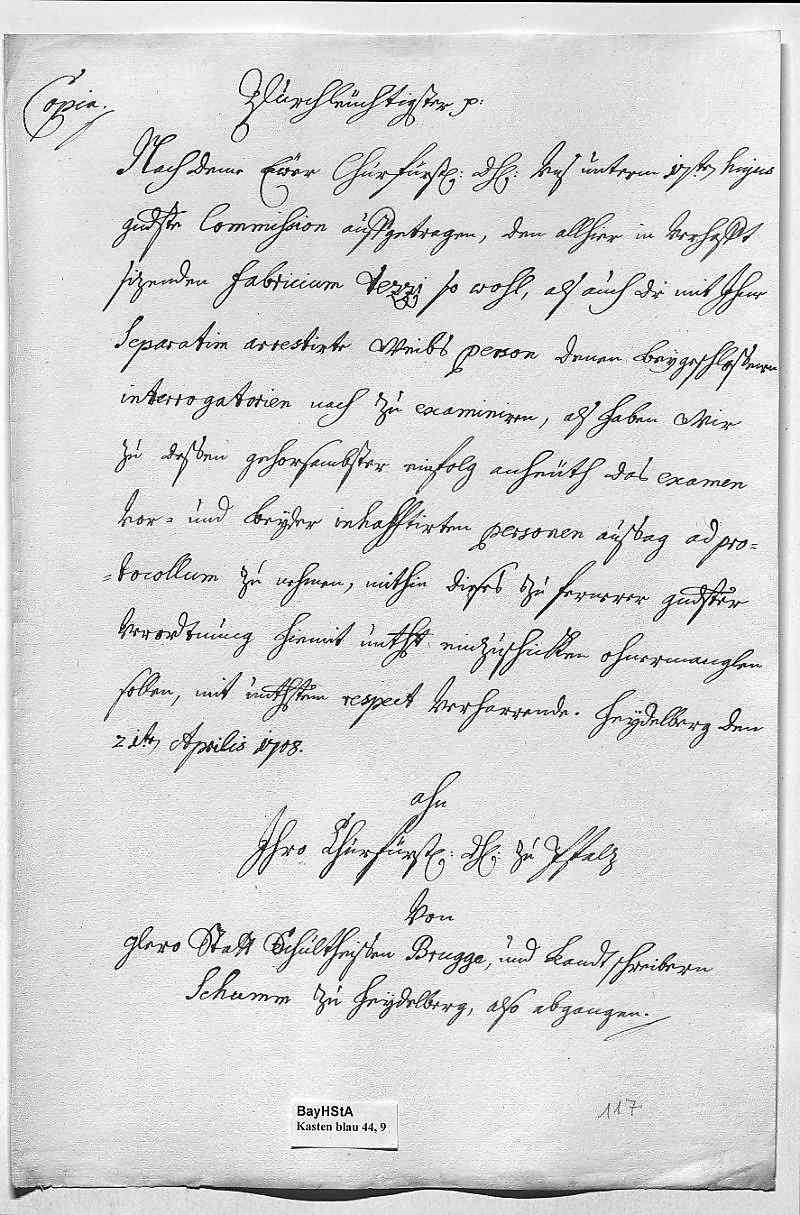 Copia.
Dürchleüchtigster p:
Nach deme Ewer Chürfürstl: dhl: Unß unterm 17ten hujus
gndste Commission aufgetragen, den allhier in Verhafft
sitzenden Fabricium Tezzi so wohl, alß auch die mit Ihme
Separatim arrestirte Weibs person denen beygeschloßenen
interrogatorien nach zu examiniren, alß haben Wir
zu deßen gehorsambster einfolg anheüth das examen
vor- und beyder inhafftirten personen außag ad pro=
=tocollum zu nehmen, mithin dießes zu fernerer gndster
Verordtnung hiemit unthst einzuschicken ohnermanglen
sollen, mit unthstem respect verharrende. Heydelberg den
21ten Aprilis 1708.
ahn
Ihro Chürfürstl: dhl: zu Pfaltz
Von
dero Statt Schültheißen Brugge, und Landtschreibern
Schumm zu Heydelberg, also abgangen.
117
BayHStA
Kasten blau 44, 9